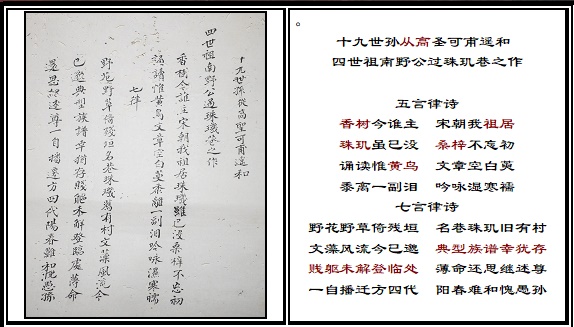 十九世孫從高聖可甫遥和
四世祖南野公過珠璣巷之作
香村今誰主宋朝我祖居珠璣雖已没桑梓不忘初
誦讀惟黄鸟文章空白萸黍離一副泪吟咏濕寒襦
七律
野花野草倚殘垣名巷珠璣舊有村文藻風流今
已邈典型族譜幸猶存賤軀未解登臨處薄命
還思継述尊一自播遷方四代陽春難和愧愚孫
。
十九世孙从高圣可甫遥和
四世祖南野公过珠玑巷之作
五言律诗
香村今谁主 宋朝我祖居
珠玑虽已没 桑梓不忘初
诵读惟黄鸟 文章空白萸
黍离一副泪 吟咏温寒襦
七言律诗
野花野草倚残垣 名巷珠玑旧有村
文藻风流今已邈 典型族谱幸犹存
贱躯未解登临处 薄命还思继述尊
一自播迁方四代 阳春难和愧愚孙